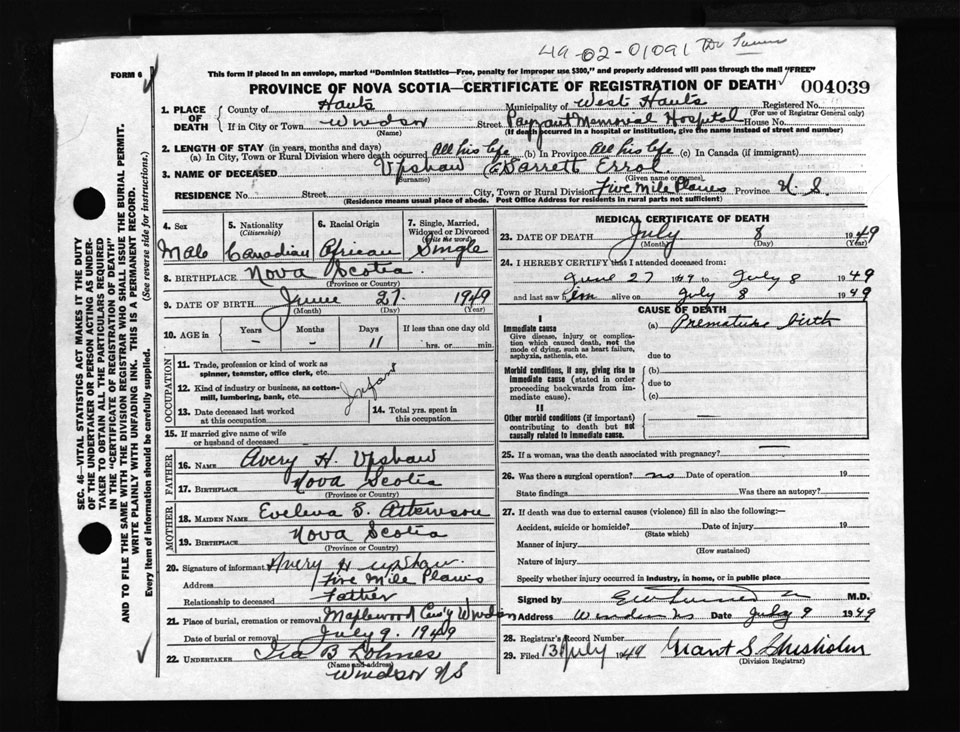 49-02-01091 Dr
This form if placed in an envelope, marked "Dominion Statistics—Free, penalty for improper use $300," and properly addressed will pass through the mail "FREE"
FORM 6
PROVINCE OF NOVA SCOTIA—CERTIFICATE OF REGISTRATION OF DEATH 004039
1. PLACE OF DEATH
County of Hants Municipality of West Hants Registered No.
(For use of Registrar General only)
If in City or Town Windsor Street Payzant Memorial Hospital House No.
(If death occurred in a hospital or institution, give the name instead of street and number)
2. LENGTH OF STAY (in years, months and days)
(a) In City, Town or Rural Division where death occurred All his life (b) In Province All his life (c) In Canada (if immigrant)
3. NAME OF DECEASED Upshaw Garrett Errol
(Surname) (Given name or names)
RESIDENCE No. Street City, Town or Rural Division Five Mile Plains Province N. S.
(Residence means usual place of abode. Post Office Address for residents in rural parts not sufficient)
4. Sex
Male
5. Nationality
(Citizenship)
Canadian
6. Racial Origin
African
7. Single, Married, Widowed or Divorced
(Write the word)
Single
8. BIRTHPLACE Nova Scotia
(Province or Country)
9. DATE OF BIRTH June 27. 1949
(Month) (Day) (Year)
10. AGE in Years Months Days If less than one day old
- - 11 hrs. or min.
OCCUPATION
11. Trade, profession or kind of work as
spinner, teamster, office clerk, etc.
12. Kind of industry or business, as cotton-
mill, lumbering, bank, etc. Infant
13. Date deceased last worked
at this occupation
14. Total yrs. spent in
this occupation
15. If married give name of wife
or husband of deceased
FATHER
16. NAME Avery H. Upshaw
17. BIRTHPLACE Nova Scotia
(Province or Country)
MOTHER
18. MAIDEN NAME Evelena S. Atkinson
19. BIRTHPLACE Nova Scotia
(Province or Country)
20. Signature of informant Avery H upshaw.
Address Five Mile Plains
Relationship to deceased Father
21. Place of burial, cremation or removal Maplewood Cem'y Windsor
Date of burial or removal July 9. 1949
22. UNDERTAKER Ira B Lohnes
(Name and address)
Windsor NS
MEDICAL CERTIFICATE OF DEATH
23. DATE OF DEATH July 8 1949
(Month) (Day) (Year)
24. I HEREBY CERTIFY that I attended deceased from:
June 27 1949 to July 8 1949
and last saw him alive on July 8 1949
CAUSE OF DEATH
I
Immediate cause (a) Premature birth
Give disease, injury or complica-
tion which caused death, not the
mode of dying, such as heart failure,
asphyxia, asthenia, etc. due to
Morbid conditions, if any, giving rise to (b)
immediate cause (stated in order
proceeding backwards from im-
mediate cause). due to
(c)
II
Other morbid conditions (if important)
contributing to death but not
causally related to immediate cause.
25. If a woman, was the death associated with pregnancy? —
26. Was there a surgical operation? no Date of operation 19
State findings Was there an autopsy?
27. If death was due to external causes (violence) fill in also the following:—
Accident, suicide or homicide? Date of injury 19
(State which)
Manner of injury
(How sustained)
Nature of injury
Specify whether injury occurred in industry, in home, or in public place
Signed by M.D.
Address Windsor NS Date July 9 1949
28. Registrar's Record Number
29. Filed 13 July 1949 Grant S. Chisholm
(Division Registrar)
SEC. 46—VITAL STATISTICS ACT MAKES IT THE DUTY
OF THE UNDERTAKER OR PERSON ACTING AS UNDER-
TAKER TO OBTAIN ALL THE PARTICULARS REQUIRED
IN THE "CERTIFICATE OF REGISTRATION OF DEATH"
AND TO FILE THE SAME WITH THE DIVISION REGISTRAR WHO SHALL ISSUE THE BURIAL PERMIT.
WRITE PLAINLY WITH UNFADING INK. THIS IS A PERMANENT RECORD.
Every item of information should be carefully supplied. (See reverse side for instructions.)